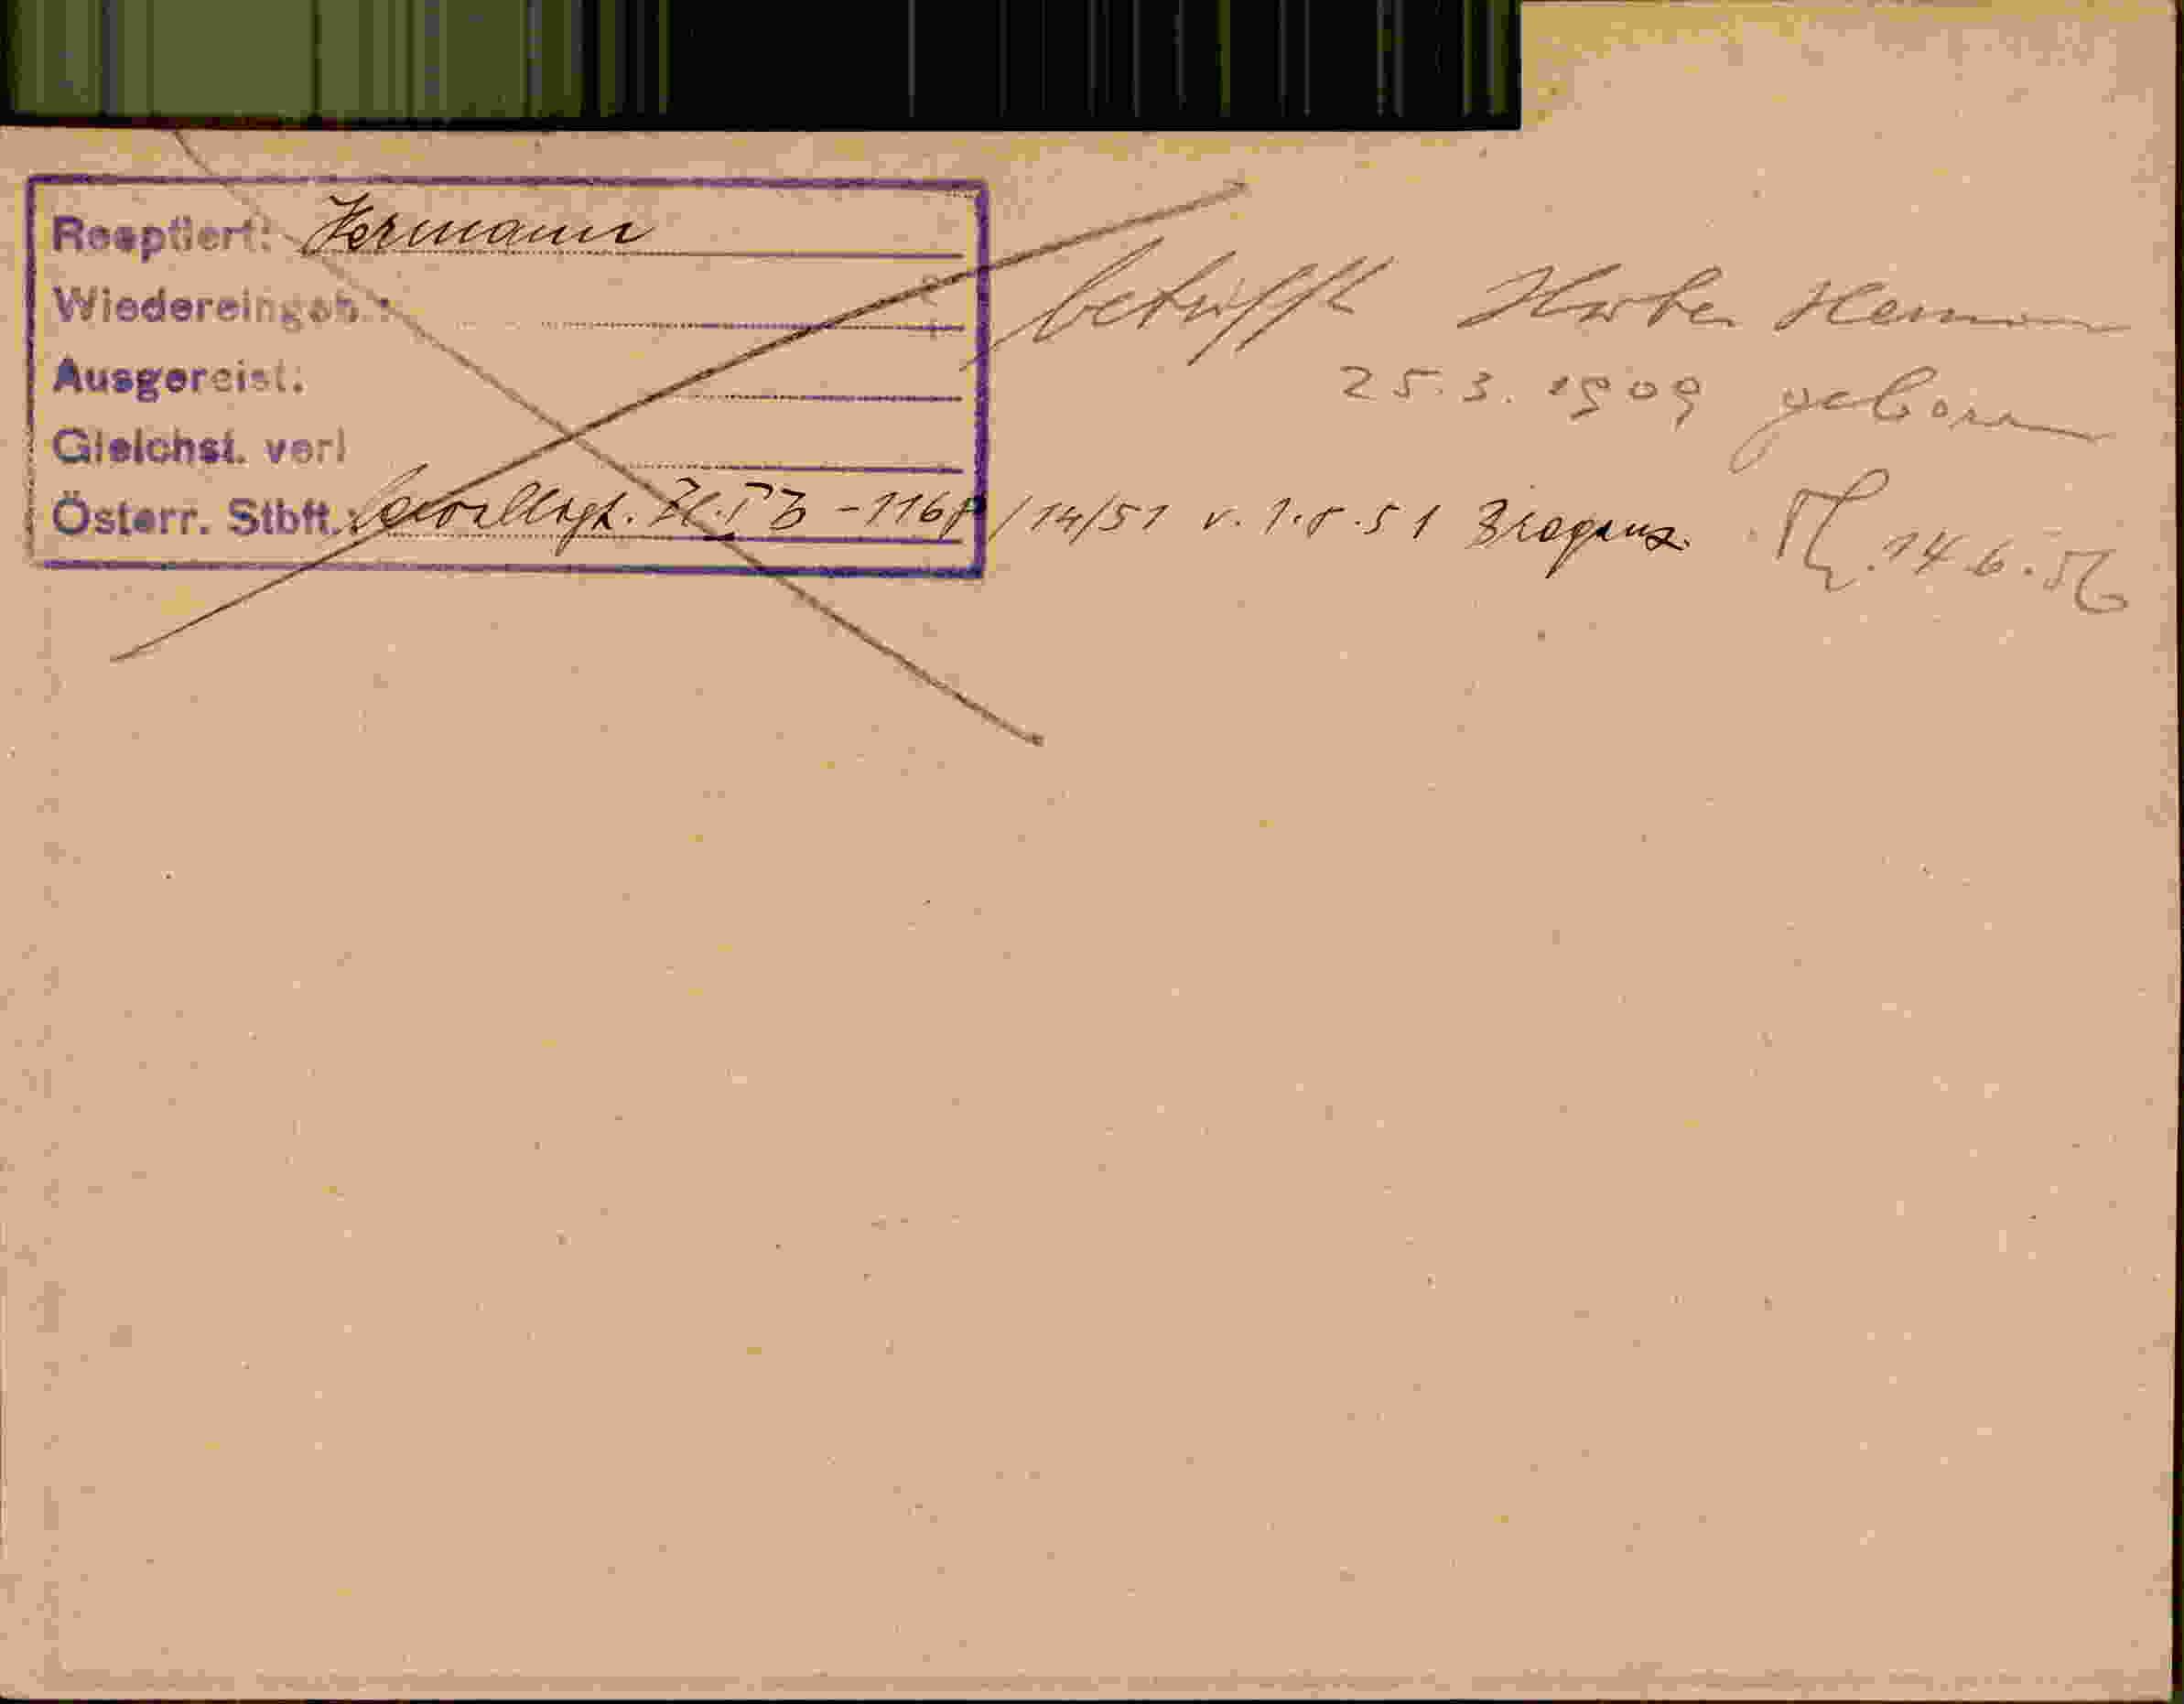 Reaptiert: Hermann
Wiedereingeb.:
Ausgereist:
Gleichst. verl
Österr. Stbft.: bewilligt. Zl. IB - 116 / 14/51 v. 1.8.51 Bregenz.
betrifft Hermann
25.3.1909 geboren
14.6.56